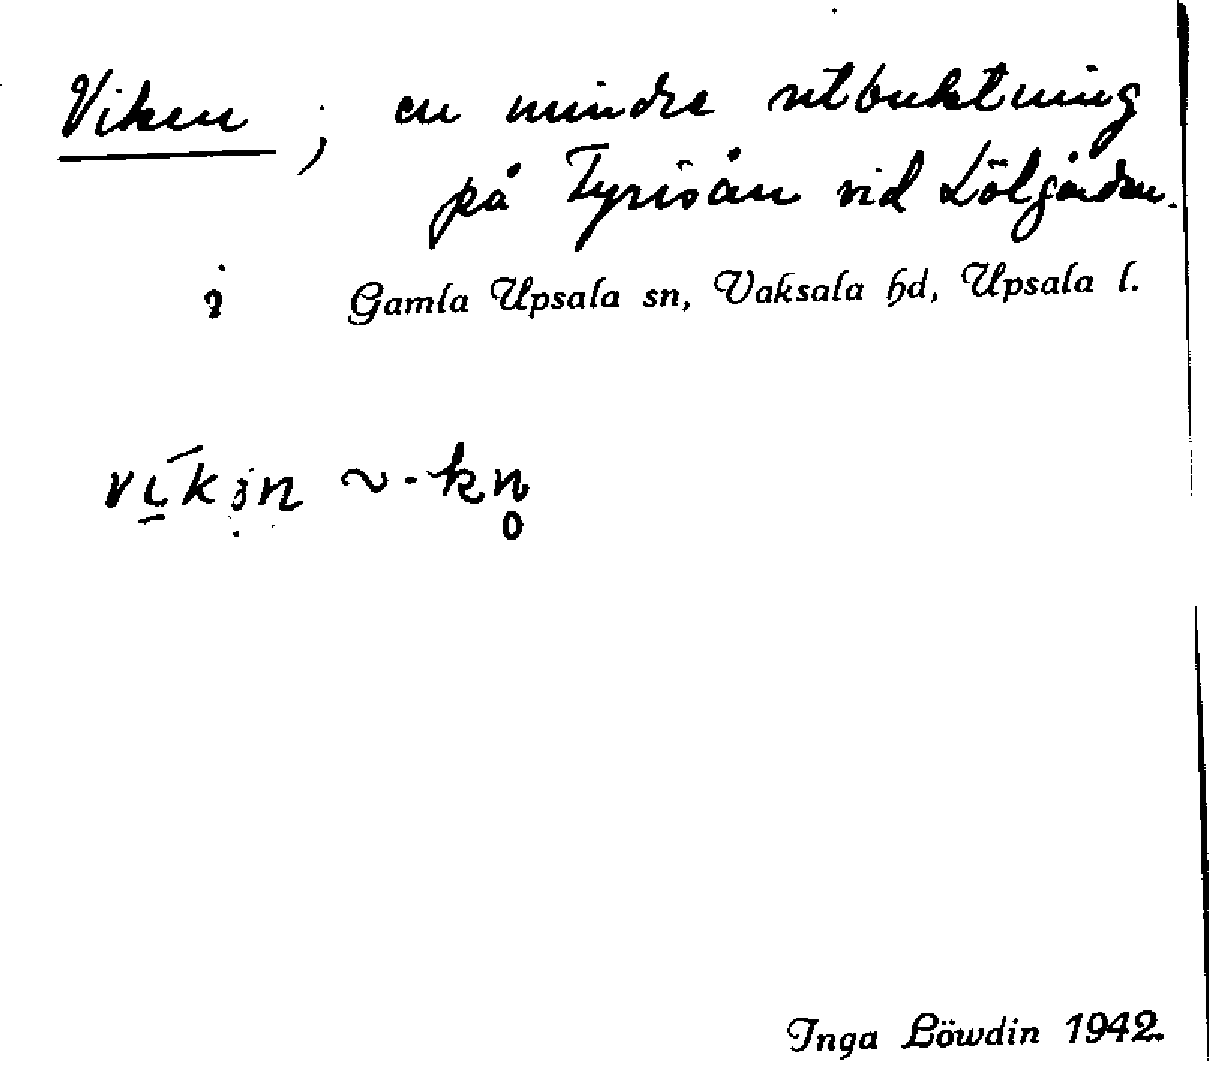 Viken ; en mindre utbuktning
på Fyrisån vid Lölgården.
i Gamla Upsala sn, Vaksala hd, Upsala l.
vík ~ -kn̥
Inga Löwdin 1942.